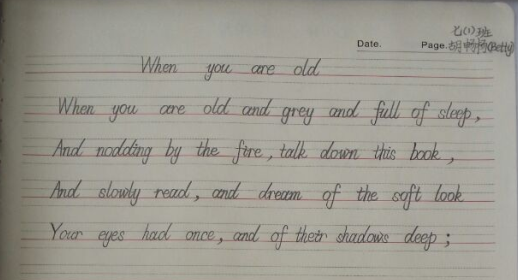 七(1)班
Date. Page. 胡畅畅(Betty)
When you are old
When you are old and grey and full of sleep,
And nodding by the fire, talk down this book,
And slowly read, and dream of the soft look
Your eyes had once, and of their shadows deep;